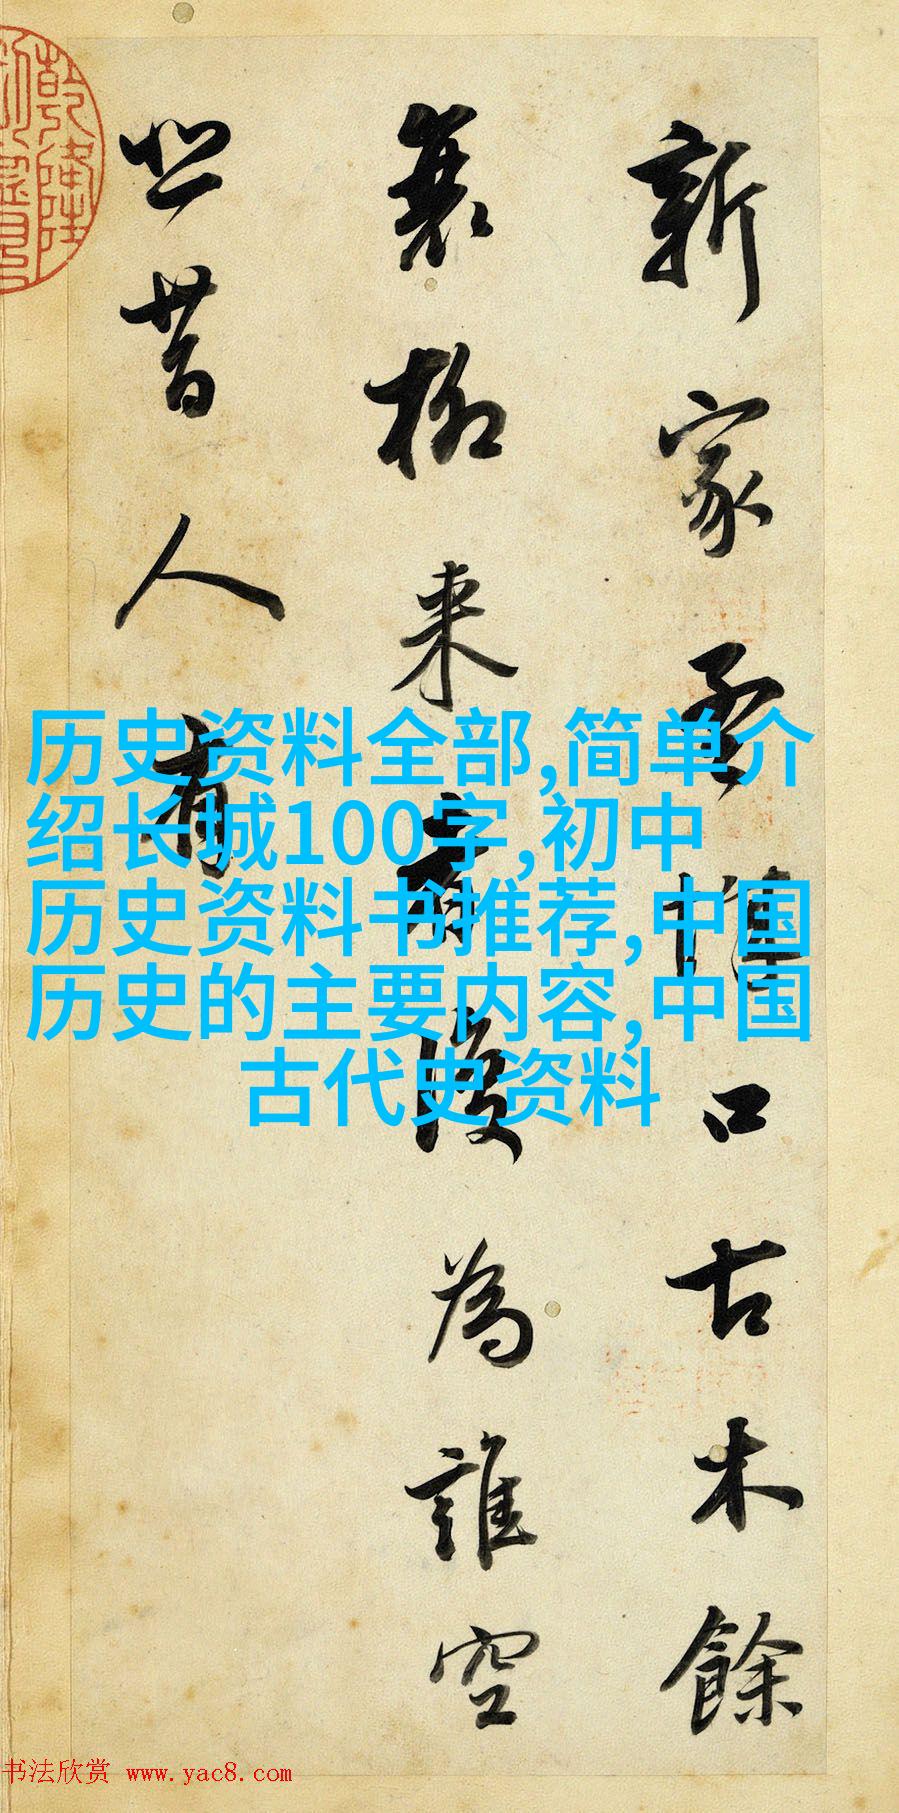 新家孟口古木餘
衰柳来復為誰空
悲昔人有
乾隆
历史资料全部,简单介
绍长城100字,初中
历史资料书推荐,中国
历史的主要内容,中国
古代史资料
书法欣赏 www.yac8.com